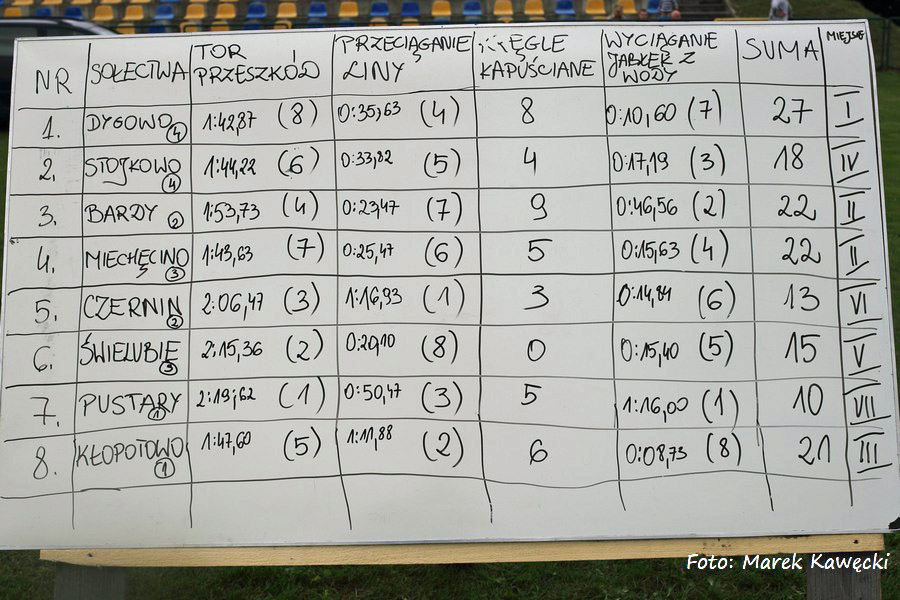 NR SOŁECTWA TOR PRZESZKÓD PRZECIĄGANIE LINY KĘGLE KAPUŚCIANE WYCIĄGANIE JABŁEK Z WODY SUMA MIEJSCE
1. DYGOWO 4 1:42,87 (8) 0:35,63 (4) 8 0:10,60 (7) 27 I
2. STOJKOWO 4 1:44,22 (6) 0:33,82 (5) 4 0:17,19 (3) 18 IV
3. BARDY 2 1:53,73 (4) 0:23,47 (7) 9 0:46,56 (2) 22 II
4. MIECHĘCINO 3 1:43,63 (7) 0:25,47 (6) 5 0:15,63 (4) 22 II
5. CZERNIN 2 2:06,47 (3) 1:16,93 (1) 3 0:14,84 (6) 13 VI
6. ŚWIELUBIE 3 2:15,36 (2) 0:20,10 (8) 0 0:15,40 (5) 15 V
7. PUSTARY 1 2:19,62 (1) 0:50,47 (3) 5 1:16,00 (1) 10 VII
8. KŁOPOTOWO 1 1:47,60 (5) 1:11,88 (2) 6 0:08,73 (8) 21 III
Foto: Marek Kawęcki